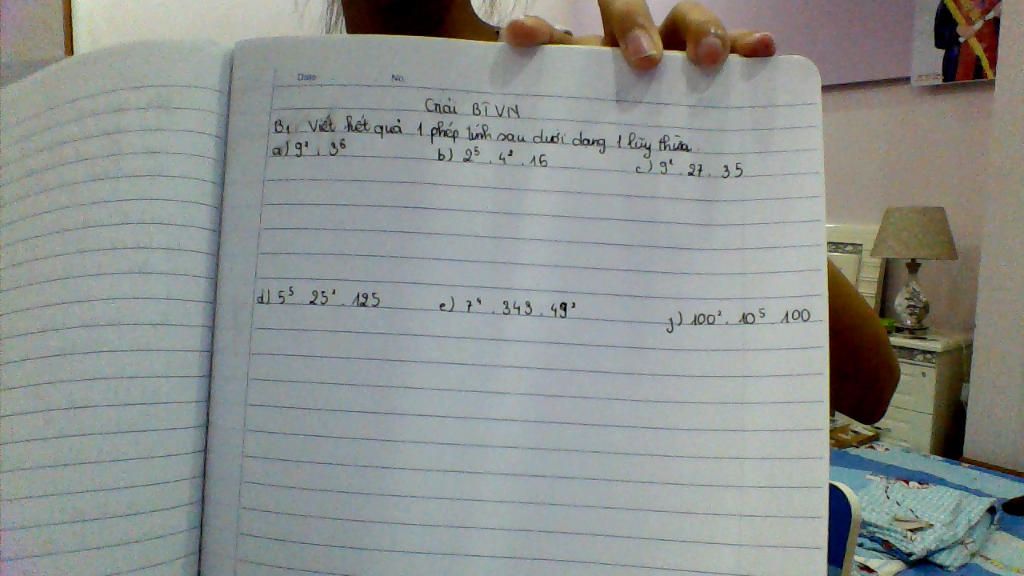 Date No.
Giải BTVN
B1 Viết kết quả 1 phép tính sau dưới dạng 1 lũy thừa.
a) 9² . 3⁶ b) 2⁵ . 4² . 16 c) 9² . 27 . 35
d) 5⁵ 25² . 125 e) 7⁴ . 343 . 49³ j) 100² . 10⁵ 100